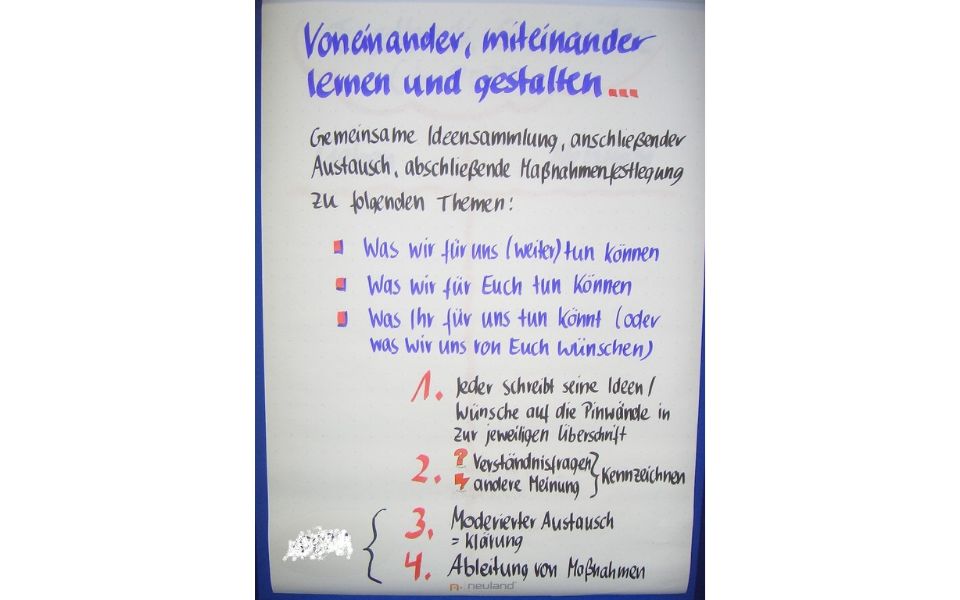 Voneinander, miteinander
lernen und gestalten...
Gemeinsame Ideensammlung, anschließender
Austausch, abschließende Maßnahmenfestlegung
zu folgenden Themen:
Was wir für uns (weiter) tun können
Was wir für Euch tun können
Was Ihr für uns tun könnt (oder
was wir uns von Euch wünschen)
1. Jeder schreibt seine Ideen/
Wünsche auf die Pinwände in
zur jeweiligen Überschrift
2. ? Verständnisfragen } Kennzeichnen
andere Meinung
3. Moderierter Austausch
= Klärung
4. Ableitung von Maßnahmen
neuland